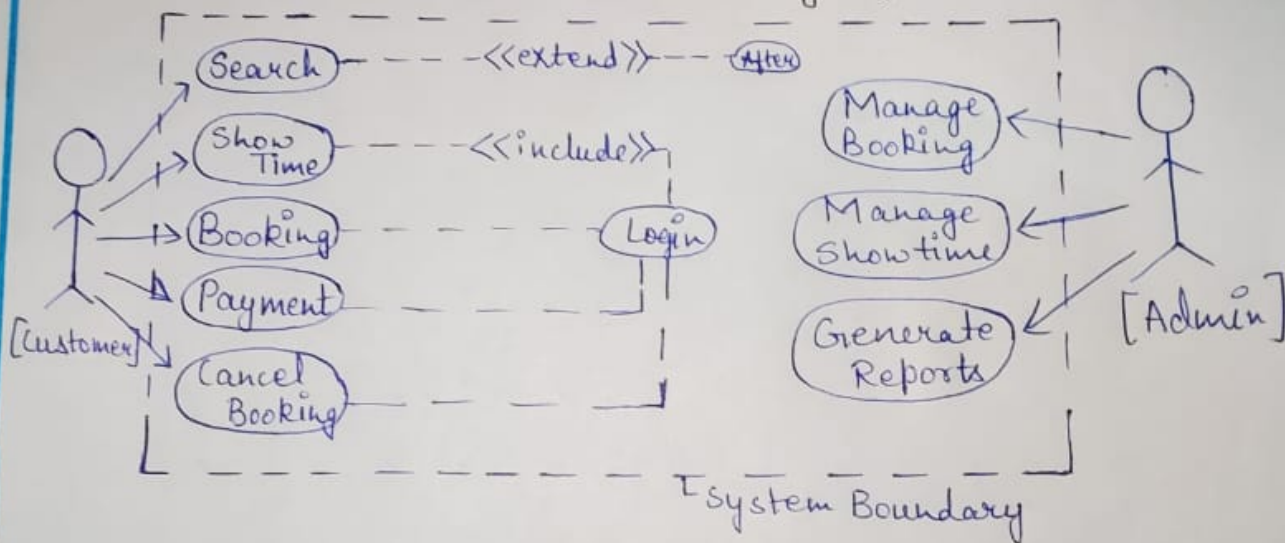 Search
<<extend>>
After
Show
Time
<<include>>
Booking
Login
Payment
Cancel
Booking
[Customer]
Manage
Booking
Manage
Showtime
Generate
Reports
[Admin]
System Boundary